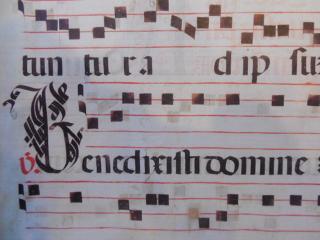 tun tu ra d ip su
V. Benedixisti domine